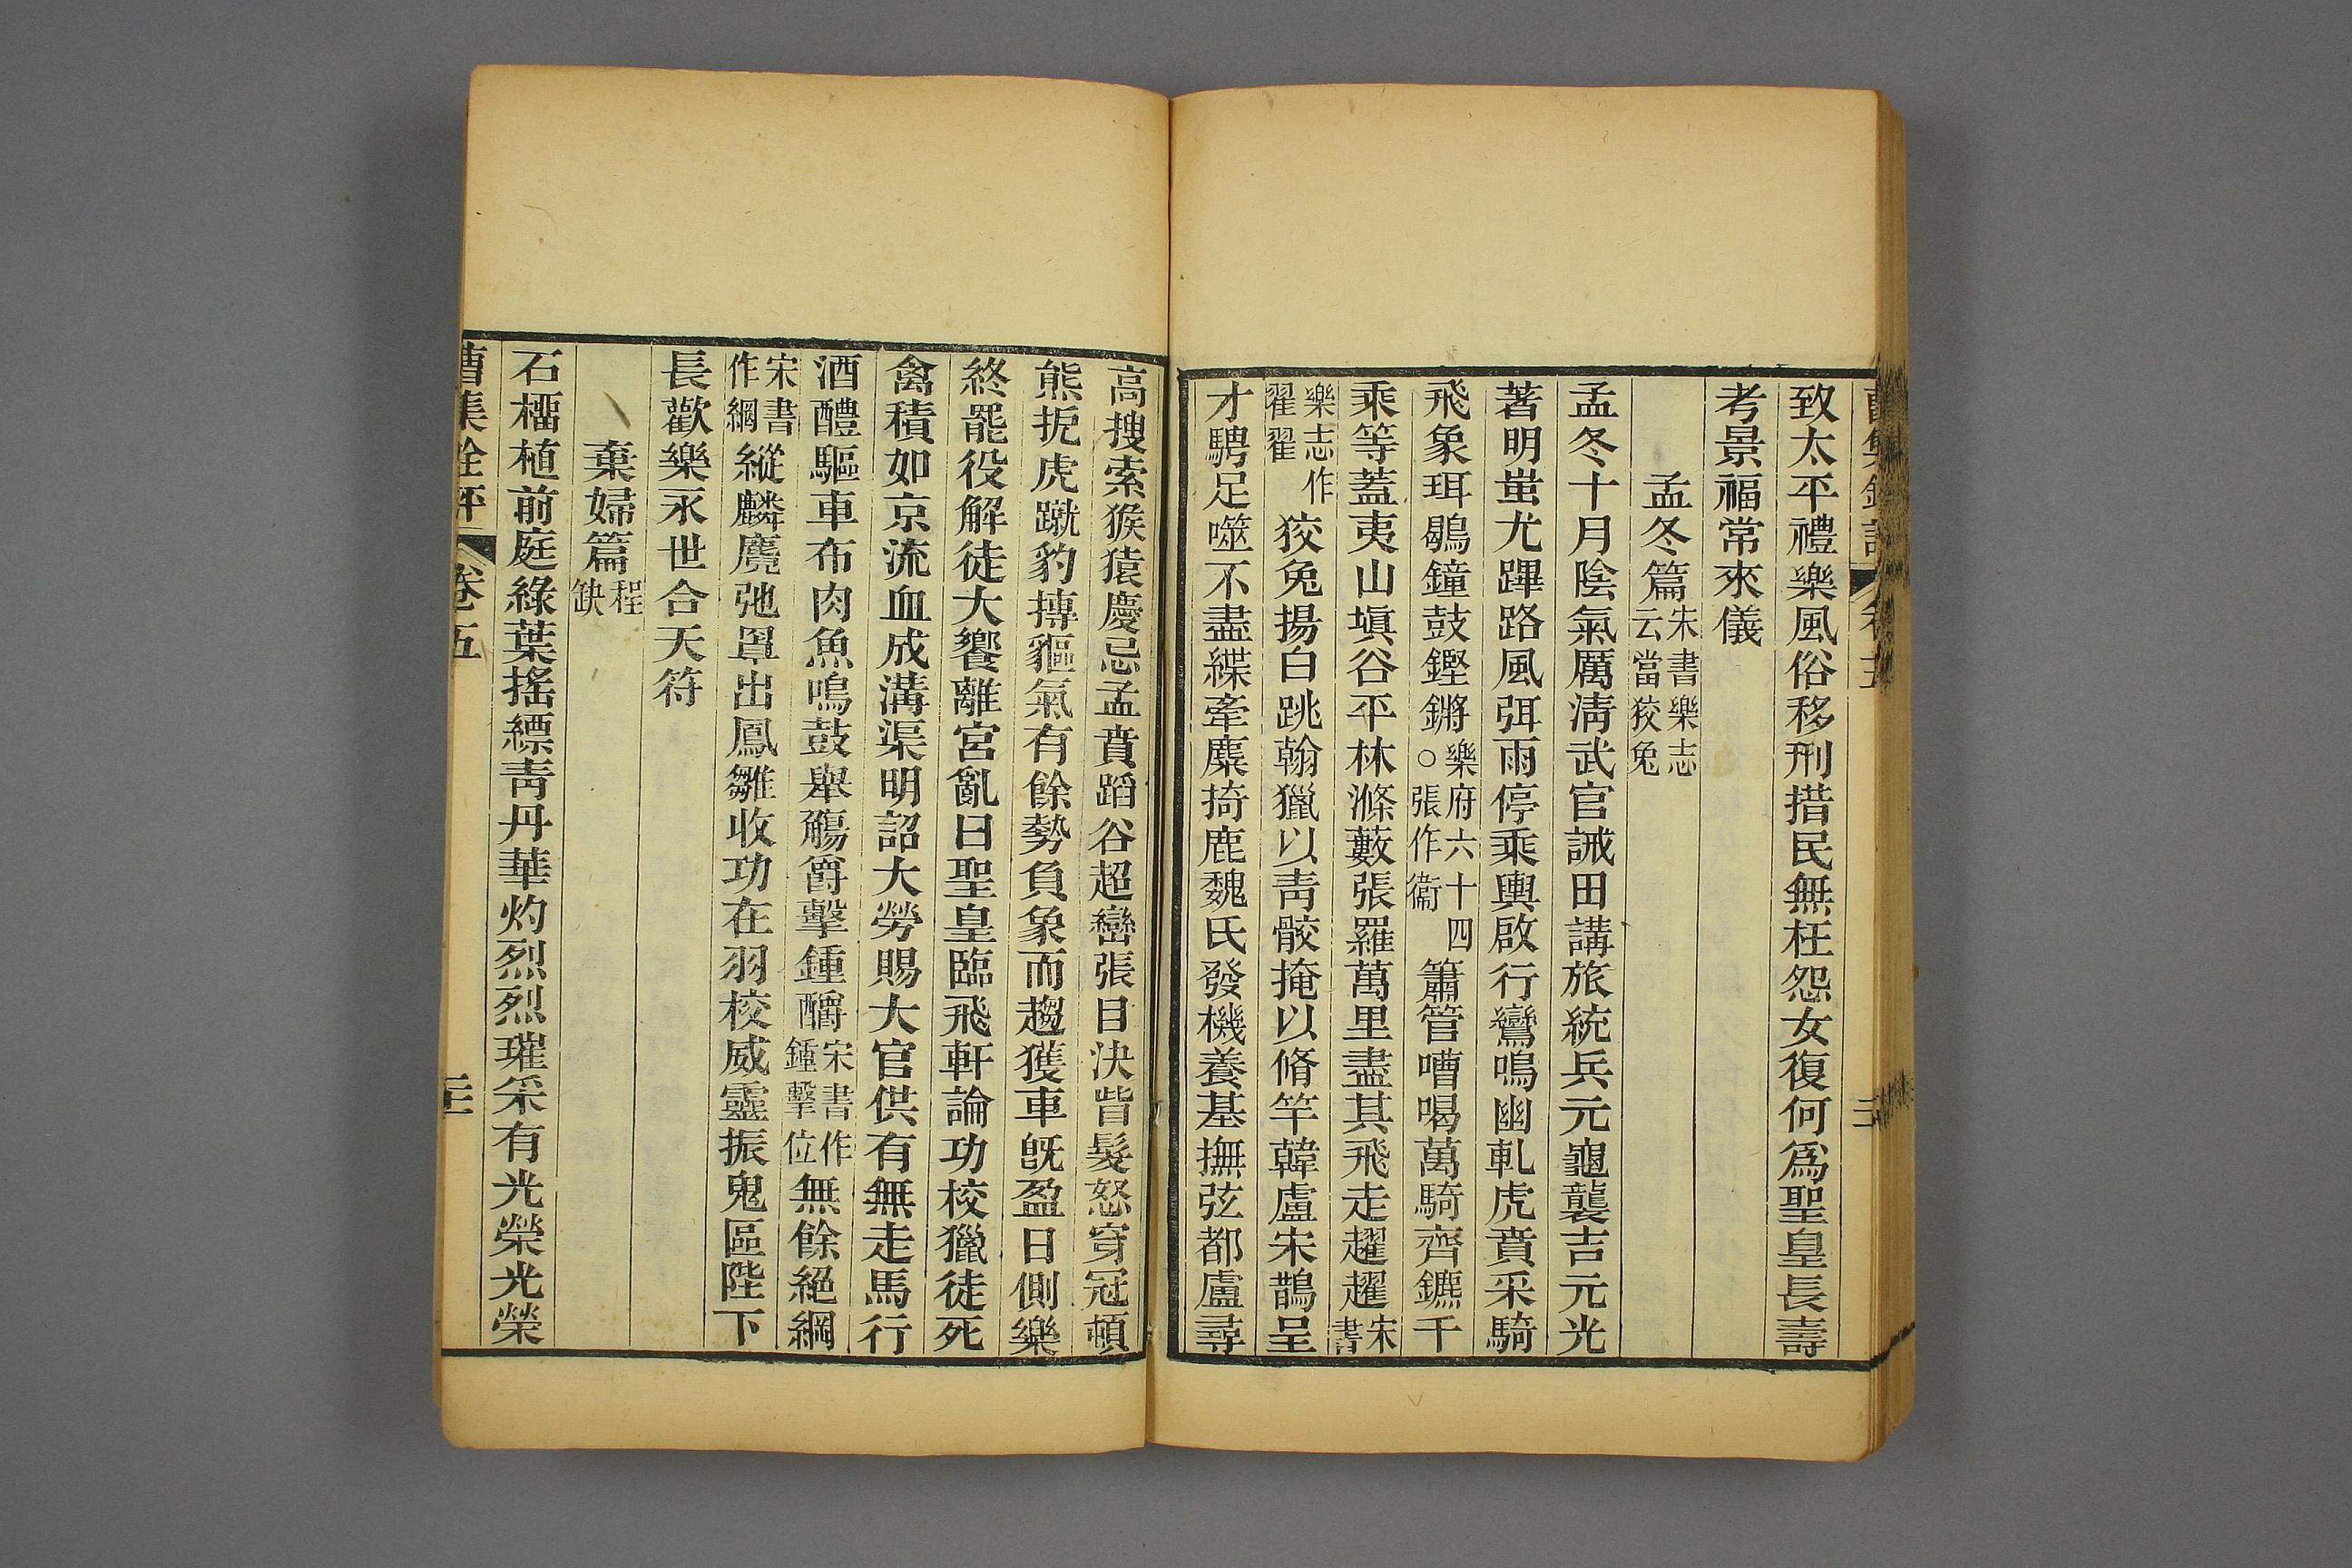 致太平禮樂風俗移刑措民無枉怨女復何爲聖皇長壽
考景福常來儀
孟冬篇宋書樂志云當狡兔
孟冬十月陰氣厲淸武官誡田講旅統兵元龜襲吉元光
著明蚩尤蹕路風弭雨停乘輿啟行鸞鳴幽軋虎賁采騎
飛象珥鶡鐘鼓鏗鏘樂府六十四○張作衞簫管嘈喝萬騎齊鑣千
乘等蓋夷山塡谷平林滌藪張羅萬里盡其飛走趯趯宋書
樂志作翟翟狡兔揚白跳翰獵以靑骹掩以脩竿韓盧宋鵲呈
才騁足噬不盡緤牽麋掎鹿魏氏發機養基撫弦都盧尋
高搜索猴猿慶忌孟賁蹈谷超巒張目決眥髮怒穿冠頓
熊扼虎蹴豹搏貙氣有餘勢負象而趨獲車旣盈日側樂
終罷役解徒大饗離宮亂曰聖皇臨飛軒論功校獵徒死
禽積如京流血成溝渠明詔大勞賜大官供有無走馬行
酒醴驅車布肉魚鳴鼓舉觴爵擊鍾釂宋書作鍾擊位無餘絕綱
宋書作網縱麟麑弛罩出鳳雛收功在羽校威靈振鬼區陛下
長歡樂永世合天符
棄婦篇程缺
石橊植前庭綠葉搖縹靑丹華灼烈烈璀采有光榮光榮
曹集銓評 卷五